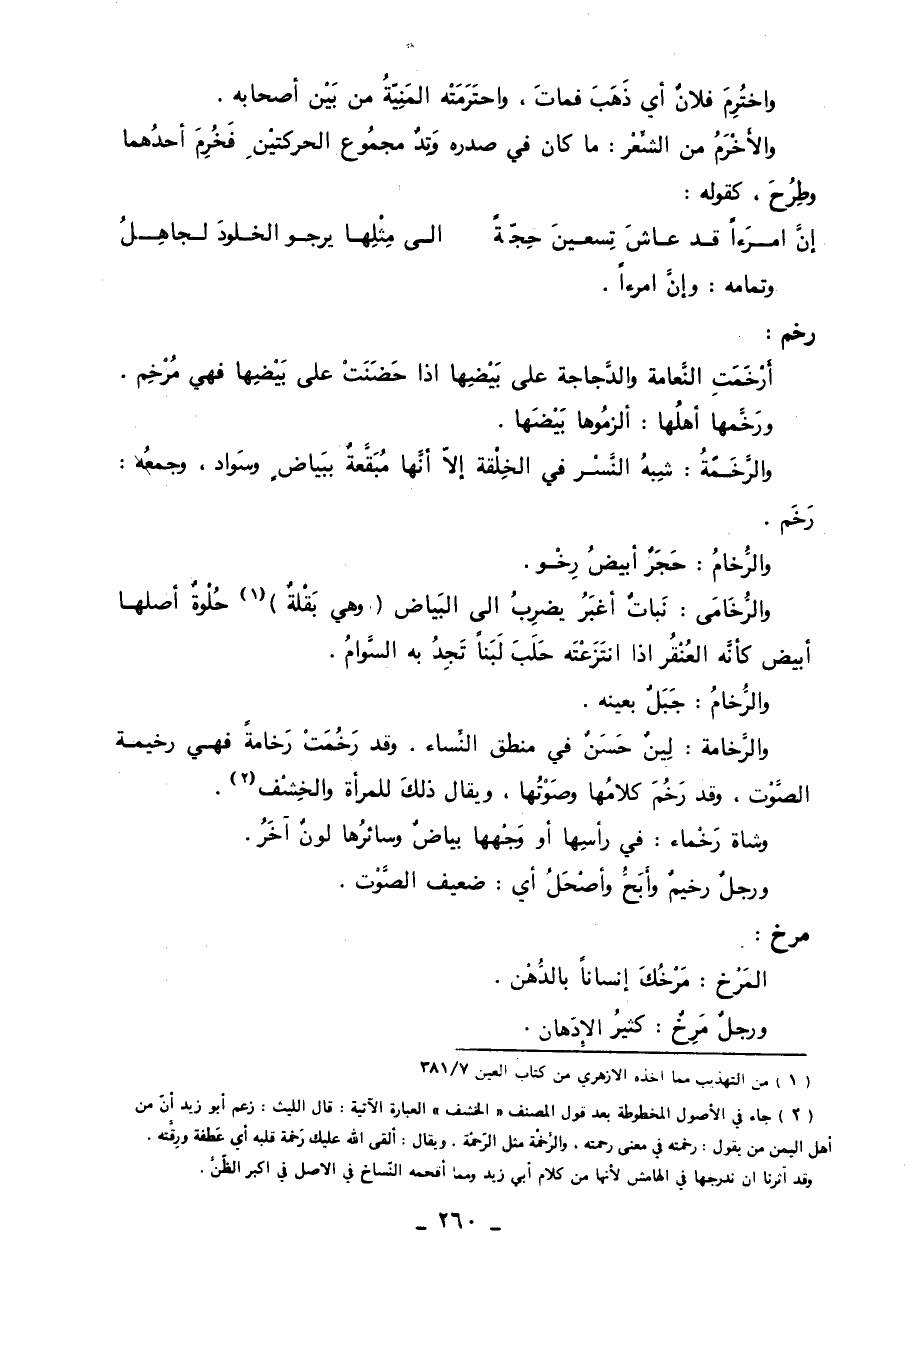 واختُرِمَ فلانٌ أي ذَهَبَ فماتَ ، واحتَرَمَتْه المَنِيّةُ من بَيْن أصحابه .
والأَخْرَمُ من الشِّعْر : ما كان في صدره وَتِدٌ مجمُوع الحركتيْنِ فَخُرِمَ أحدُهما
وطُرِحَ ، كقوله :
إنَّ امـرَءاً قـد عـاشَ تِسعـينَ حِجّـةً الـى مِثْلِهـا يرجـو الخلـودَ لـجاهِـلُ
وتمامه : وإنَّ امرءاً .
رخم :
أَرْخَمَتِ النَّعامة والدَّجاجة على بَيْضِها اذا حَضَنَتْ على بَيْضِها فهي مُرْخِم .
ورَخَّمها أهلُها : ألزمُوها بَيْضَها .
والرَّخَـمَةُ : شِبهُ النَّسْـر في الخِلْقة إلاّ أنَّها مُبَقَّعةٌ ببَياضٍ وسَواد ، وجمعُه :
رَخَم .
والرُّخامُ : حَجَرٌ أبيضُ رِخْـو .
والرُّخَامَى : نَباتٌ أغبَرُ يضرِبُ الى البَياض ( وهي بَقْلةٌ )(١) حُلْوةٌ أصلهـا
أبيض كأنَّه العُنْقُر اذا انتَزَعْتَه حلَبَ لَبَناً تَجِدُ به السَّوامُ .
والرُّخامُ : جَبَلٌ بعينه .
والرَّخامة : لِينٌ حَسَنٌ في منطق النِّساء . وقد رَخُمَتْ رَخامةً فهـي رخيمـة
الصَّوْت ، وقد رَخُمَ كلامُها وصَوْتُها ، ويقال ذلكَ للمرأة والخِشْف(٢) .
وشاة رَخْماء : في رأسِها أو وَجْهها بياضٌ وسائرُها لونٌ آخَرُ .
ورجلٌ رخيمٌ وأَبَحُّ وأصْحَلُ أي : ضعيف الصَّوْت .
مرخ :
المَرْخ : مَرْخُكَ إنساناً بالدُّهْن .
ورجلٌ مَرِخٌ : كثيرُ الإدَهان .
( ١ ) من التهذيب مما اخذه الازهري من كتاب العين ٣٨١/٧
( ٢ ) جاء في الأصول المخطوطة بعد قول المصنف « الخشف » العبارة الآتية : قال الليث : زعم أبو زيد أنّ من
أهل اليمن من يقول : رخمته في معنى رحمته ، والرُخْمَة مثل الرَحْمَة . ويقال : ألقى الله عليك رَخمَة قلبه أي عَطفة ورِقَّته .
وقد آثرنا ان ندرجها في الهامش لأنها من كلام أبي زيد ومما أقحمه النّساخ في الاصل في اكبر الظّنُ .
ـ ٢٦٠ ـ